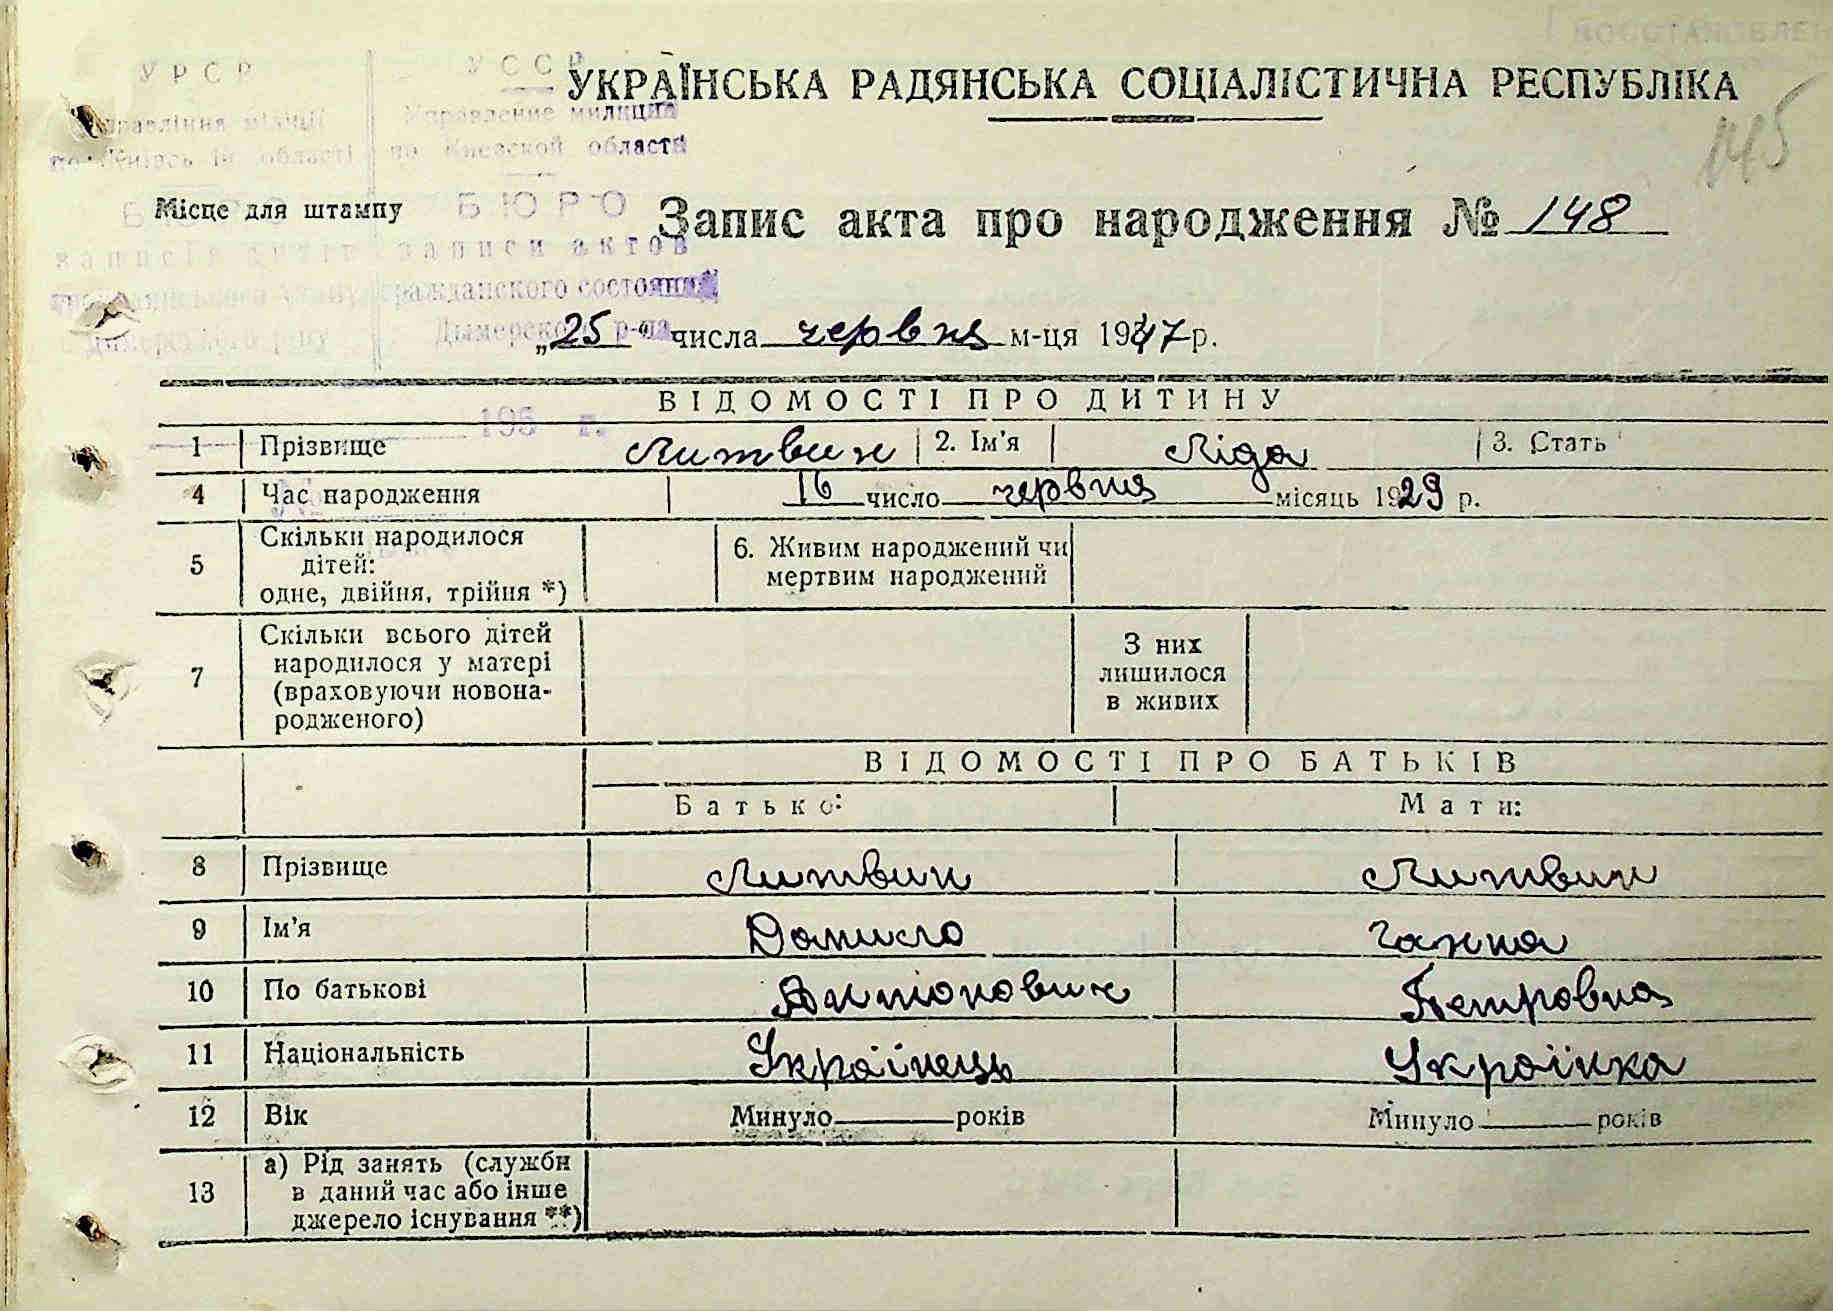 УРСР
УССР
УКРАЇНСЬКА РАДЯНСЬКА СОЦІАЛІСТИЧНА РЕСПУБЛІКА
Управление милиции
області по Киевской области
145
Місце для штампу
БЮРО
Запис акта про народження № 148
записи актов
гражданского состояния
Дымерского р-на
„25“ числа червня м-ця 1947 р.
ВІДОМОСТІ ПРО ДИТИНУ
195 г.
1 Прізвище Литвин 2. Ім'я Ліда 3. Стать
4 Час народження 16 число червня місяць 1929 р.
5 Скільки народилося
дітей:
одне, двійня, трійня *)
6. Живим народжений чи
мертвим народжений
7 Скільки всього дітей
народилося у матері
(враховуючи новона-
родженого)
З них
лишилося
в живих
ВІДОМОСТІ ПРО БАТЬКІВ
Батько: Мати:
8 Прізвище Литвин Литвин
9 Ім'я Данило Ганна
10 По батькові Антонович Петровна
11 Національність Українець Українка
12 Вік Минуло років Минуло років
13 а) Рід занять (службн
в даний час або інше
джерело існування **)